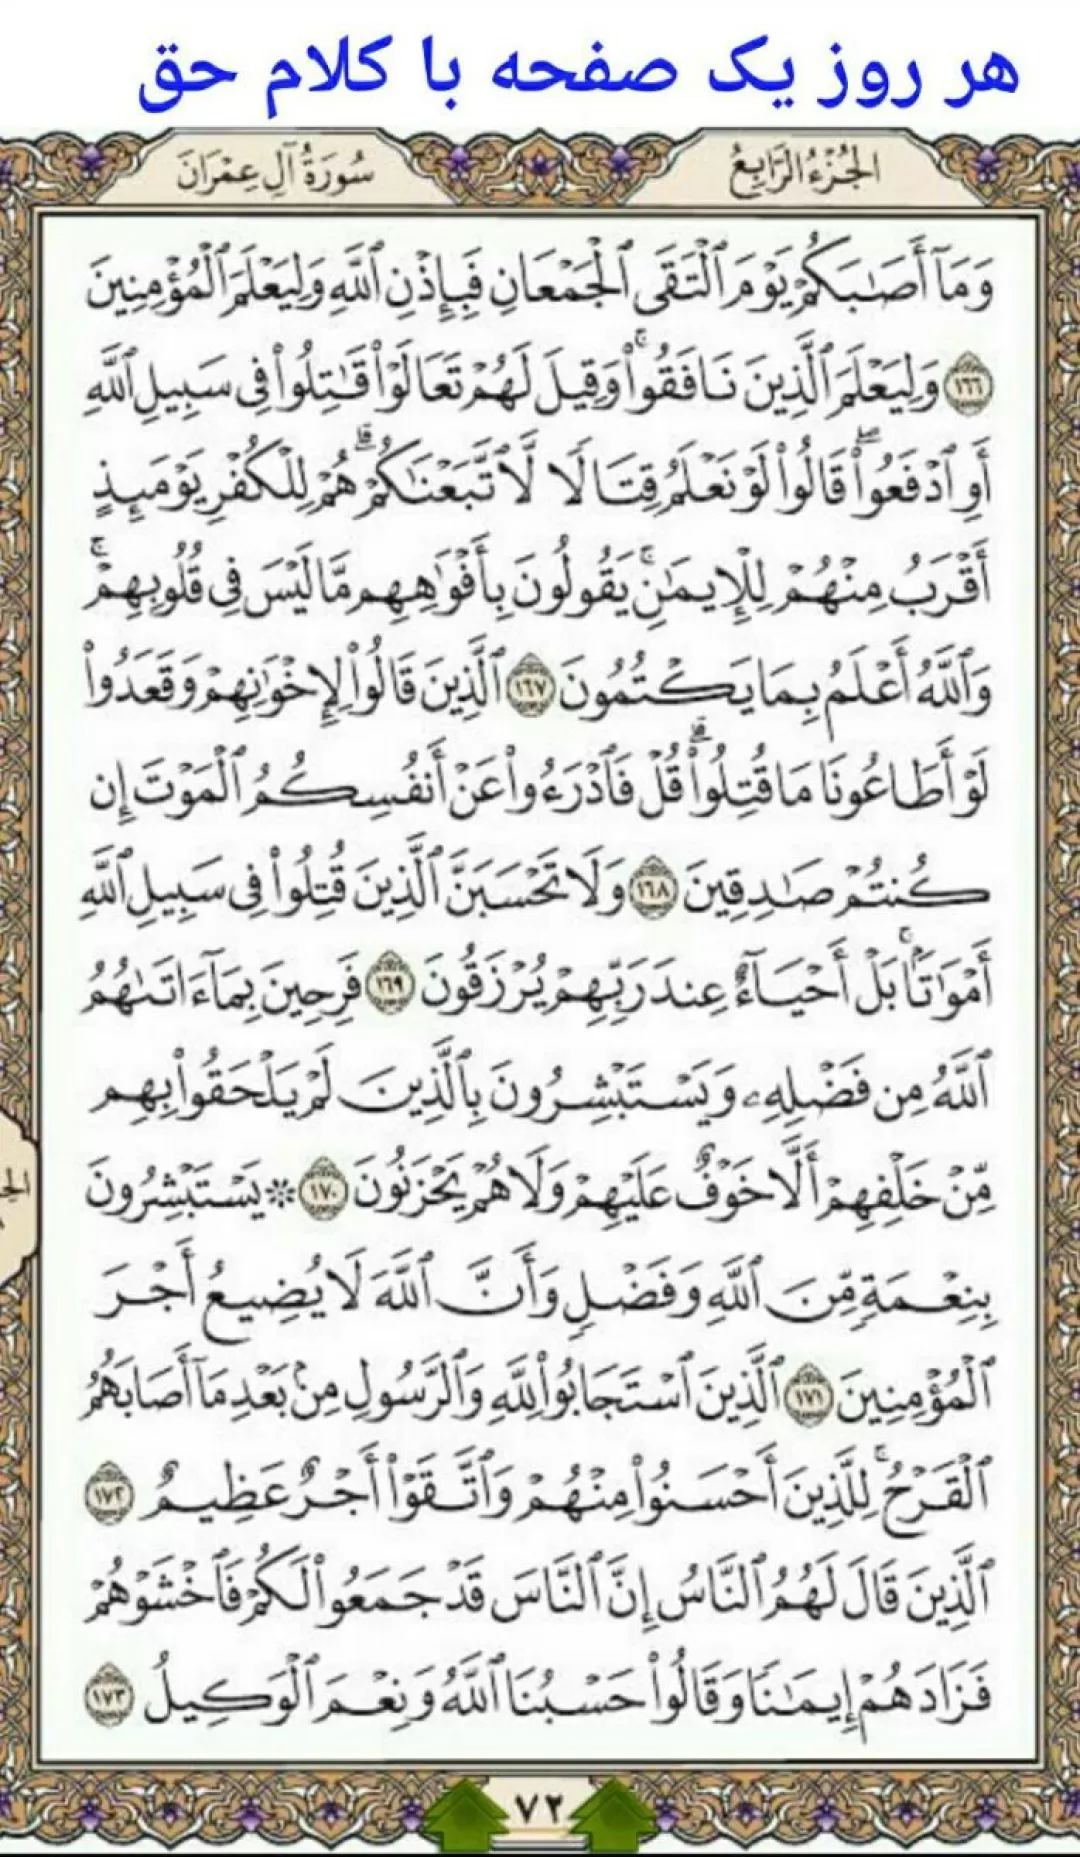 هر روز یک صفحه با کلام حق
الجُزْءُ الرَّابِعُ
سُورَةُ آلِ عِمْرَانَ
وَمَآ أَصَٰبَكُمْ يَوْمَ ٱلْتَقَى ٱلْجَمْعَانِ فَبِإِذْنِ ٱللَّهِ وَلِيَعْلَمَ ٱلْمُؤْمِنِينَ
١٦٦ وَلِيَعْلَمَ ٱلَّذِينَ نَافَقُوا۟ ۚ وَقِيلَ لَهُمْ تَعَالَوْا۟ قَٰتِلُوا۟ فِى سَبِيلِ ٱللَّهِ
أَوِ ٱدْفَعُوا۟ ۖ قَالُوا۟ لَوْ نَعْلَمُ قِتَالًا لَّٱتَّبَعْنَٰكُمْ ۗ هُمْ لِلْكُفْرِ يَوْمَئِذٍ
أَقْرَبُ مِنْهُمْ لِلْإِيمَٰنِ ۚ يَقُولُونَ بِأَفْوَٰهِهِم مَّا لَيْسَ فِى قُلُوبِهِمْ ۗ
وَٱللَّهُ أَعْلَمُ بِمَا يَكْتُمُونَ ١٦٧ ٱلَّذِينَ قَالُوا۟ لِإِخْوَٰنِهِمْ وَقَعَدُوا۟
لَوْ أَطَاعُونَا مَا قُتِلُوا۟ ۗ قُلْ فَٱدْرَءُوا۟ عَنْ أَنفُسِكُمُ ٱلْمَوْتَ إِن
كُنتُمْ صَٰدِقِينَ ١٦٨ وَلَا تَحْسَبَنَّ ٱلَّذِينَ قُتِلُوا۟ فِى سَبِيلِ ٱللَّهِ
أَمْوَٰتًۢا ۚ بَلْ أَحْيَآءٌ عِندَ رَبِّهِمْ يُرْزَقُونَ ١٦٩ فَرِحِينَ بِمَآ ءَاتَىٰهُمُ
ٱللَّهُ مِن فَضْلِهِۦ وَيَسْتَبْشِرُونَ بِٱلَّذِينَ لَمْ يَلْحَقُوا۟ بِهِم
مِّنْ خَلْفِهِمْ أَلَّا خَوْفٌ عَلَيْهِمْ وَلَا هُمْ يَحْزَنُونَ ١٧٠ ۞ يَسْتَبْشِرُونَ
بِنِعْمَةٍ مِّنَ ٱللَّهِ وَفَضْلٍ وَأَنَّ ٱللَّهَ لَا يُضِيعُ أَجْرَ
ٱلْمُؤْمِنِينَ ١٧١ ٱلَّذِينَ ٱسْتَجَابُوا۟ لِلَّهِ وَٱلرَّسُولِ مِنۢ بَعْدِ مَآ أَصَابَهُمُ
ٱلْقَرْحُ ۚ لِلَّذِينَ أَحْسَنُوا۟ مِنْهُمْ وَٱتَّقَوْا۟ أَجْرٌ عَظِيمٌ ١٧٢
ٱلَّذِينَ قَالَ لَهُمُ ٱلنَّاسُ إِنَّ ٱلنَّاسَ قَدْ جَمَعُوا۟ لَكُمْ فَٱخْشَوْهُمْ
فَزَادَهُمْ إِيمَٰنًا وَقَالُوا۟ حَسْبُنَا ٱللَّهُ وَنِعْمَ ٱلْوَكِيلُ ١٧٣
٧٢